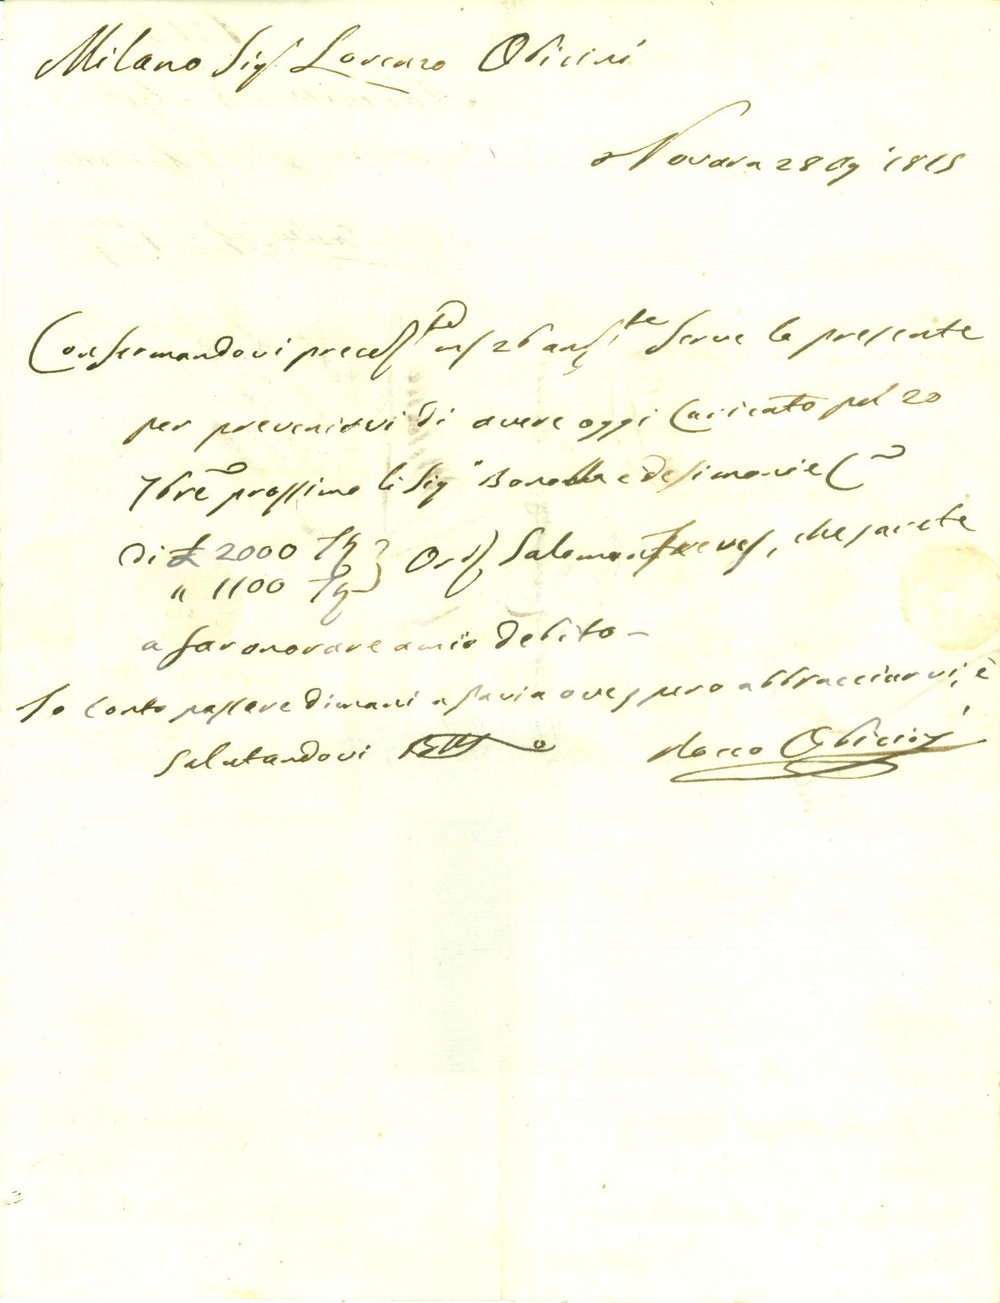 Milano Sigr Lorenzo Obicini
Novara 28 Ag 1815
Confermandovi precedte 26 andte Serve la presente
per prevenirvi di avere oggi Caricato pel 20
7bre prossimo li Sigri Bono e Desimoni e C
di £ 2000
" 1100 Ord Salomon Treves, che farete
a far onorare a mio debito -
Io conto passare dimani a Pavia ove spero abbracciarvi, e
Salutandovi
Rocco Obicini